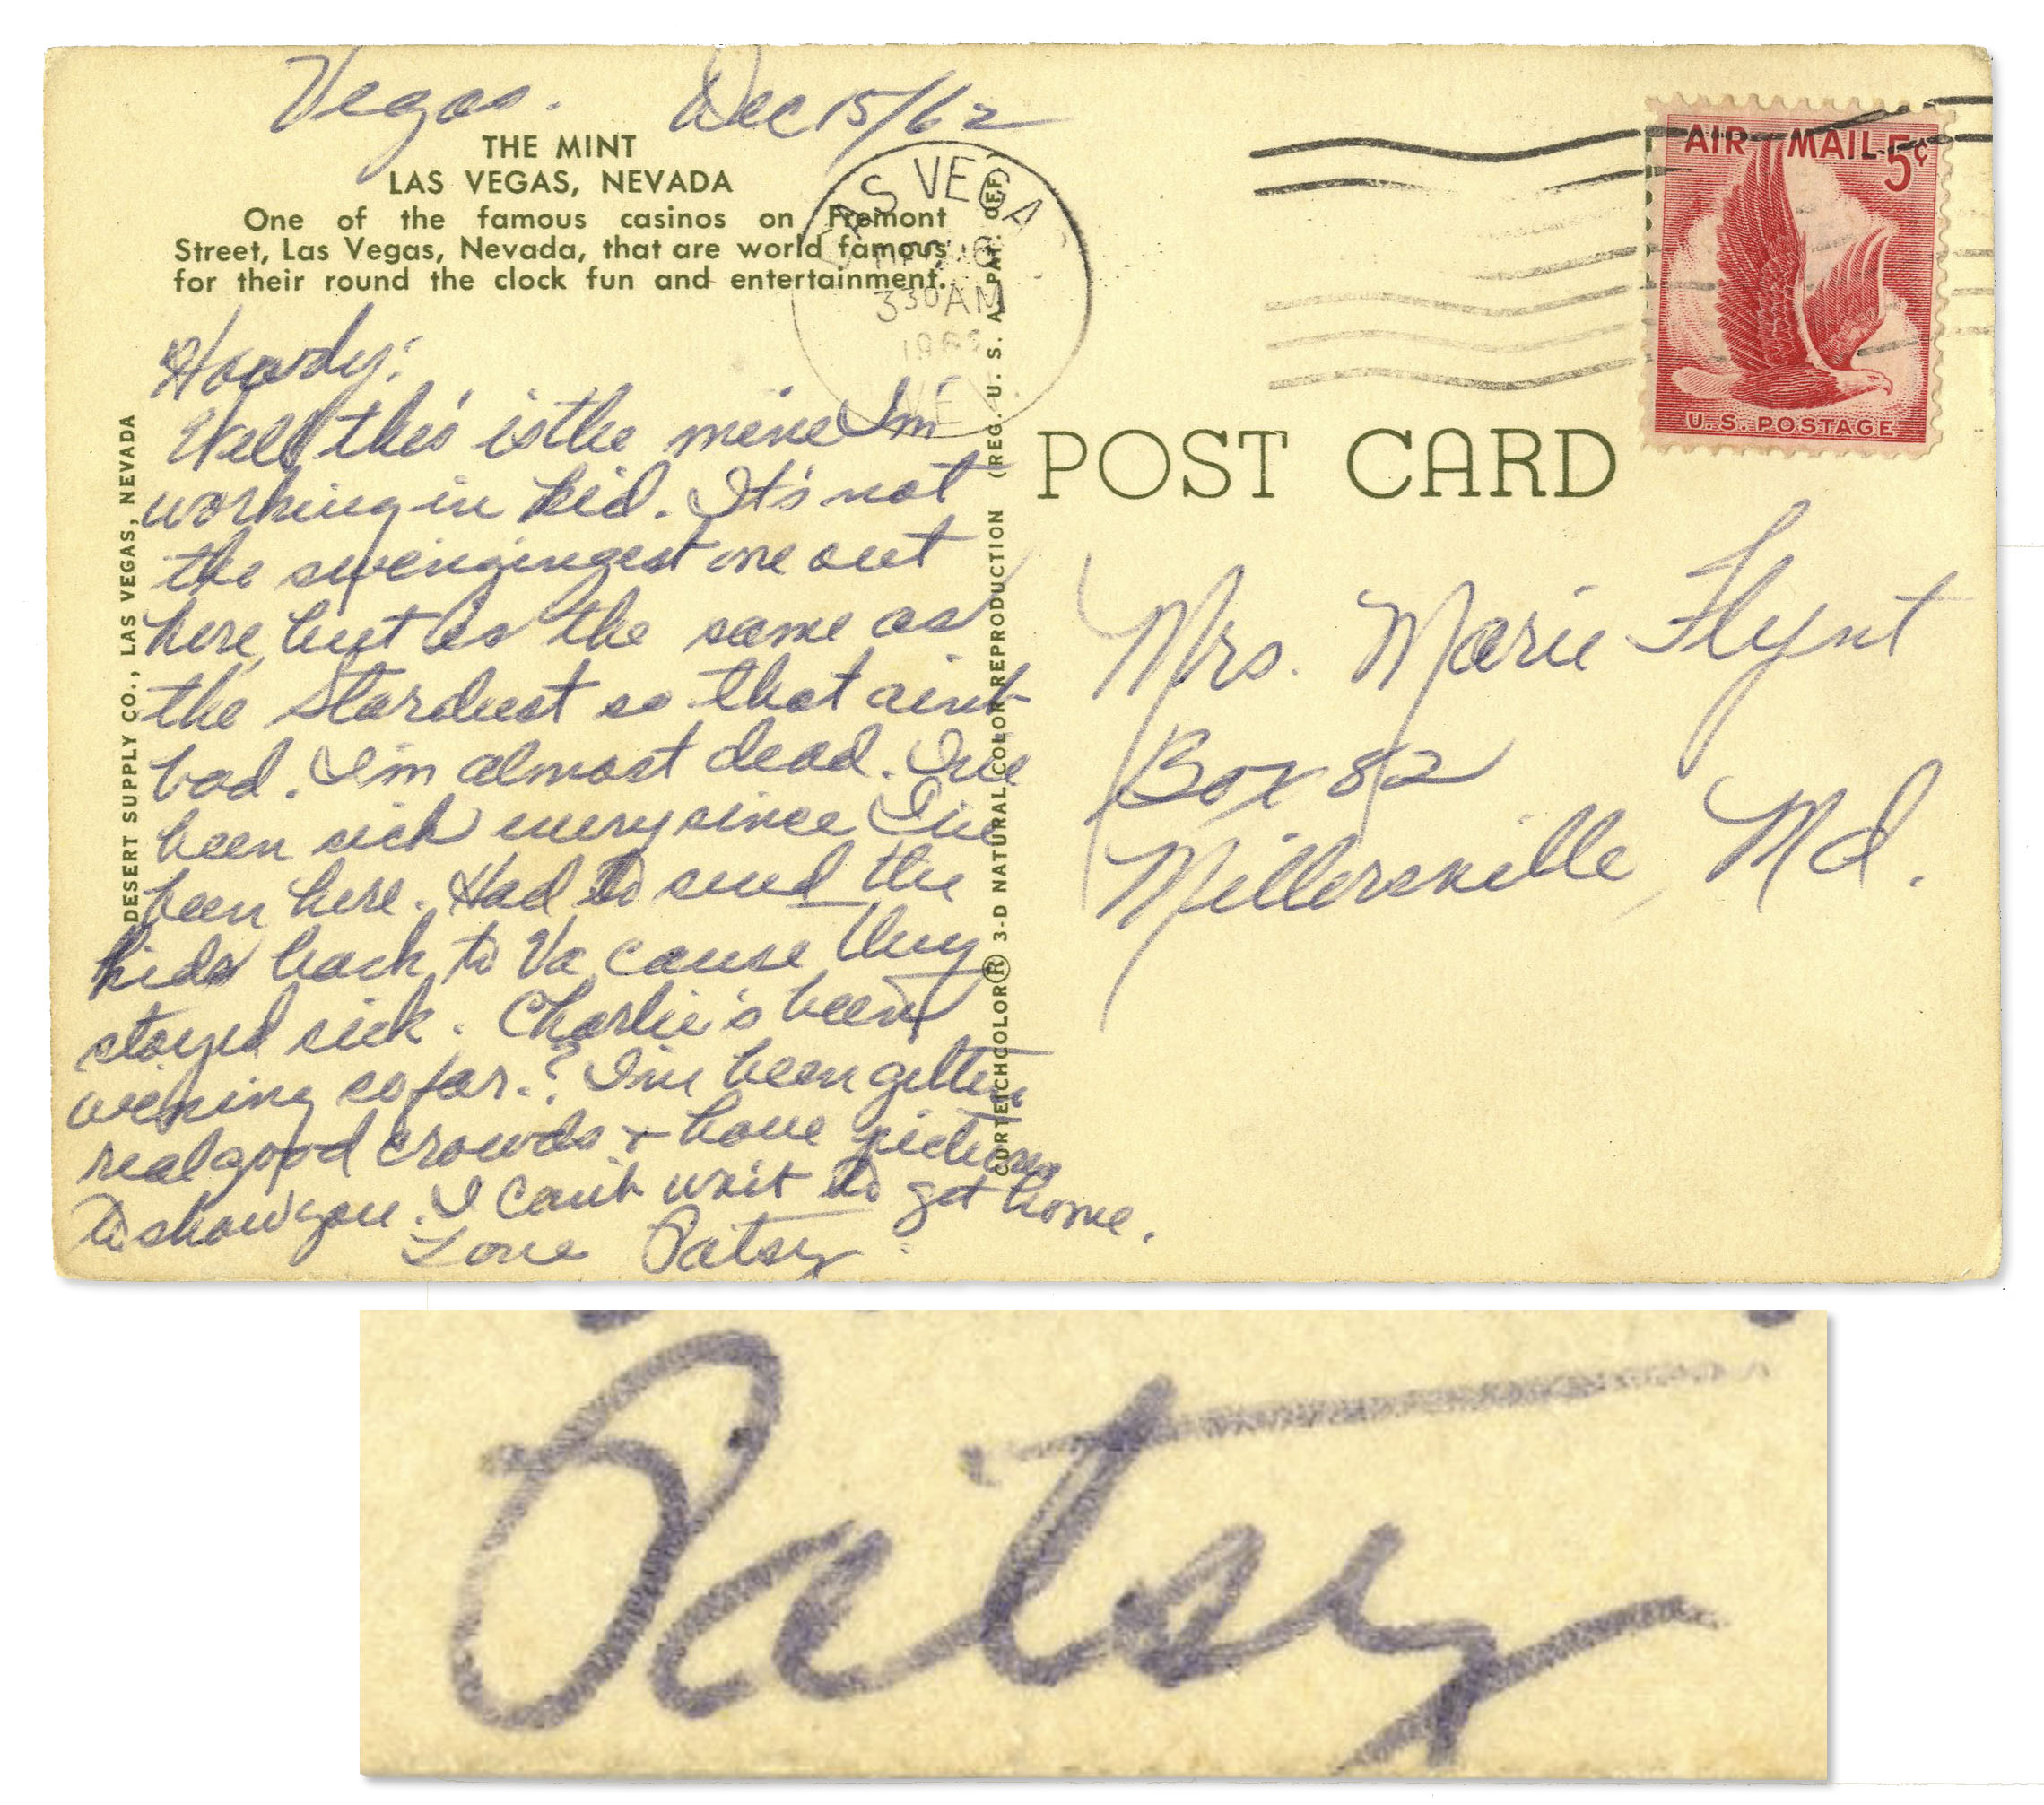 Vegas. Dec 15/62
THE MINT
LAS VEGAS, NEVADA
One of the famous casinos on Fremont
Street, Las Vegas, Nevada, that are world famous
for their round the clock fun and entertainment.
Howdy:
Well this is the mine I'm
working in kid. It's not
the swengingest one out
here, but is the same as
the Stardust so that aint
bad. I'm almost dead. I've
been sick every since I've
been here. Had to send the
kids back to Va, cause they
stayed sick. Charlie's been
wening so far.? I've been getten
real good crowds + have pictures
to show you. I can't wait to get home.
Love Patsy
DESERT SUPPLY CO., LAS VEGAS, NEVADA
CURTEICHCOLOR® 3-D NATURAL COLOR REPRODUCTION (REG. U. S. A. PAT. OFF.)
LAS VEGAS
3 30 AM
NEV.
AIR MAIL 5¢
U.S. POSTAGE
POST CARD
Mrs. Marie Flynt
Box 82
Millersville, Md.
Patsy